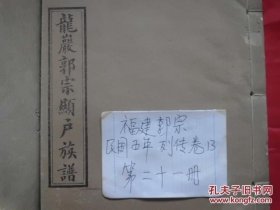 龍巖郭宗顯戶族譜
福建郭宗
民国五年 列传卷13
第二十一册